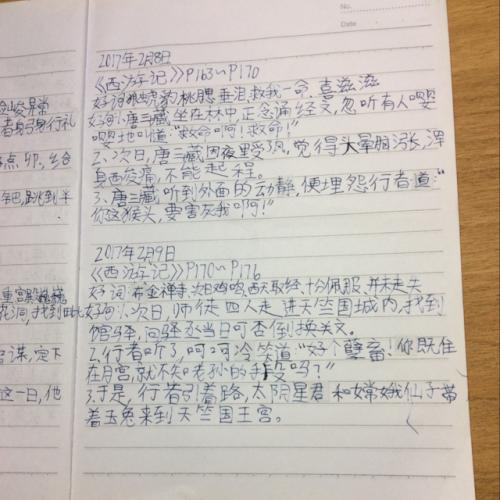 No.
Date
2017年2月8日
《西游记》P163~P170
好词 虎豹 桃腮垂泪 救我一命 喜滋滋
好句 1、唐三藏坐在林中正念诵经文,忽听有人嘤
嘤地叫道:“救命啊!救命!”
2、次日,唐三藏因夜里受风,觉得头晕脑涨,浑
身酸痛,不能起程。
3、唐三藏听到外面的动静,便埋怨行者道:“
你这猴头,要害死我啊!”
2017年2月9日
《西游记》P170~P176
好词 布金禅寺 次日鸡鸣 西天取经 十分佩服 并未走失
好句1、次日,师徒四人走进天竺国城内,找到
馆驿,问驿丞当日可否倒换关文。
2、行者听了,呵呵冷笑道:“好个孽畜!你既住
在月宫,就不知老孙的手段吗?”
3、于是,行者引着路,太阴星君和嫦娥仙子带
着玉兔来到天竺国王宫。
异常
者身行礼
点卯,
吧,跳到半
重宫殿
花洞,找到此
谋,定下
这一日,他